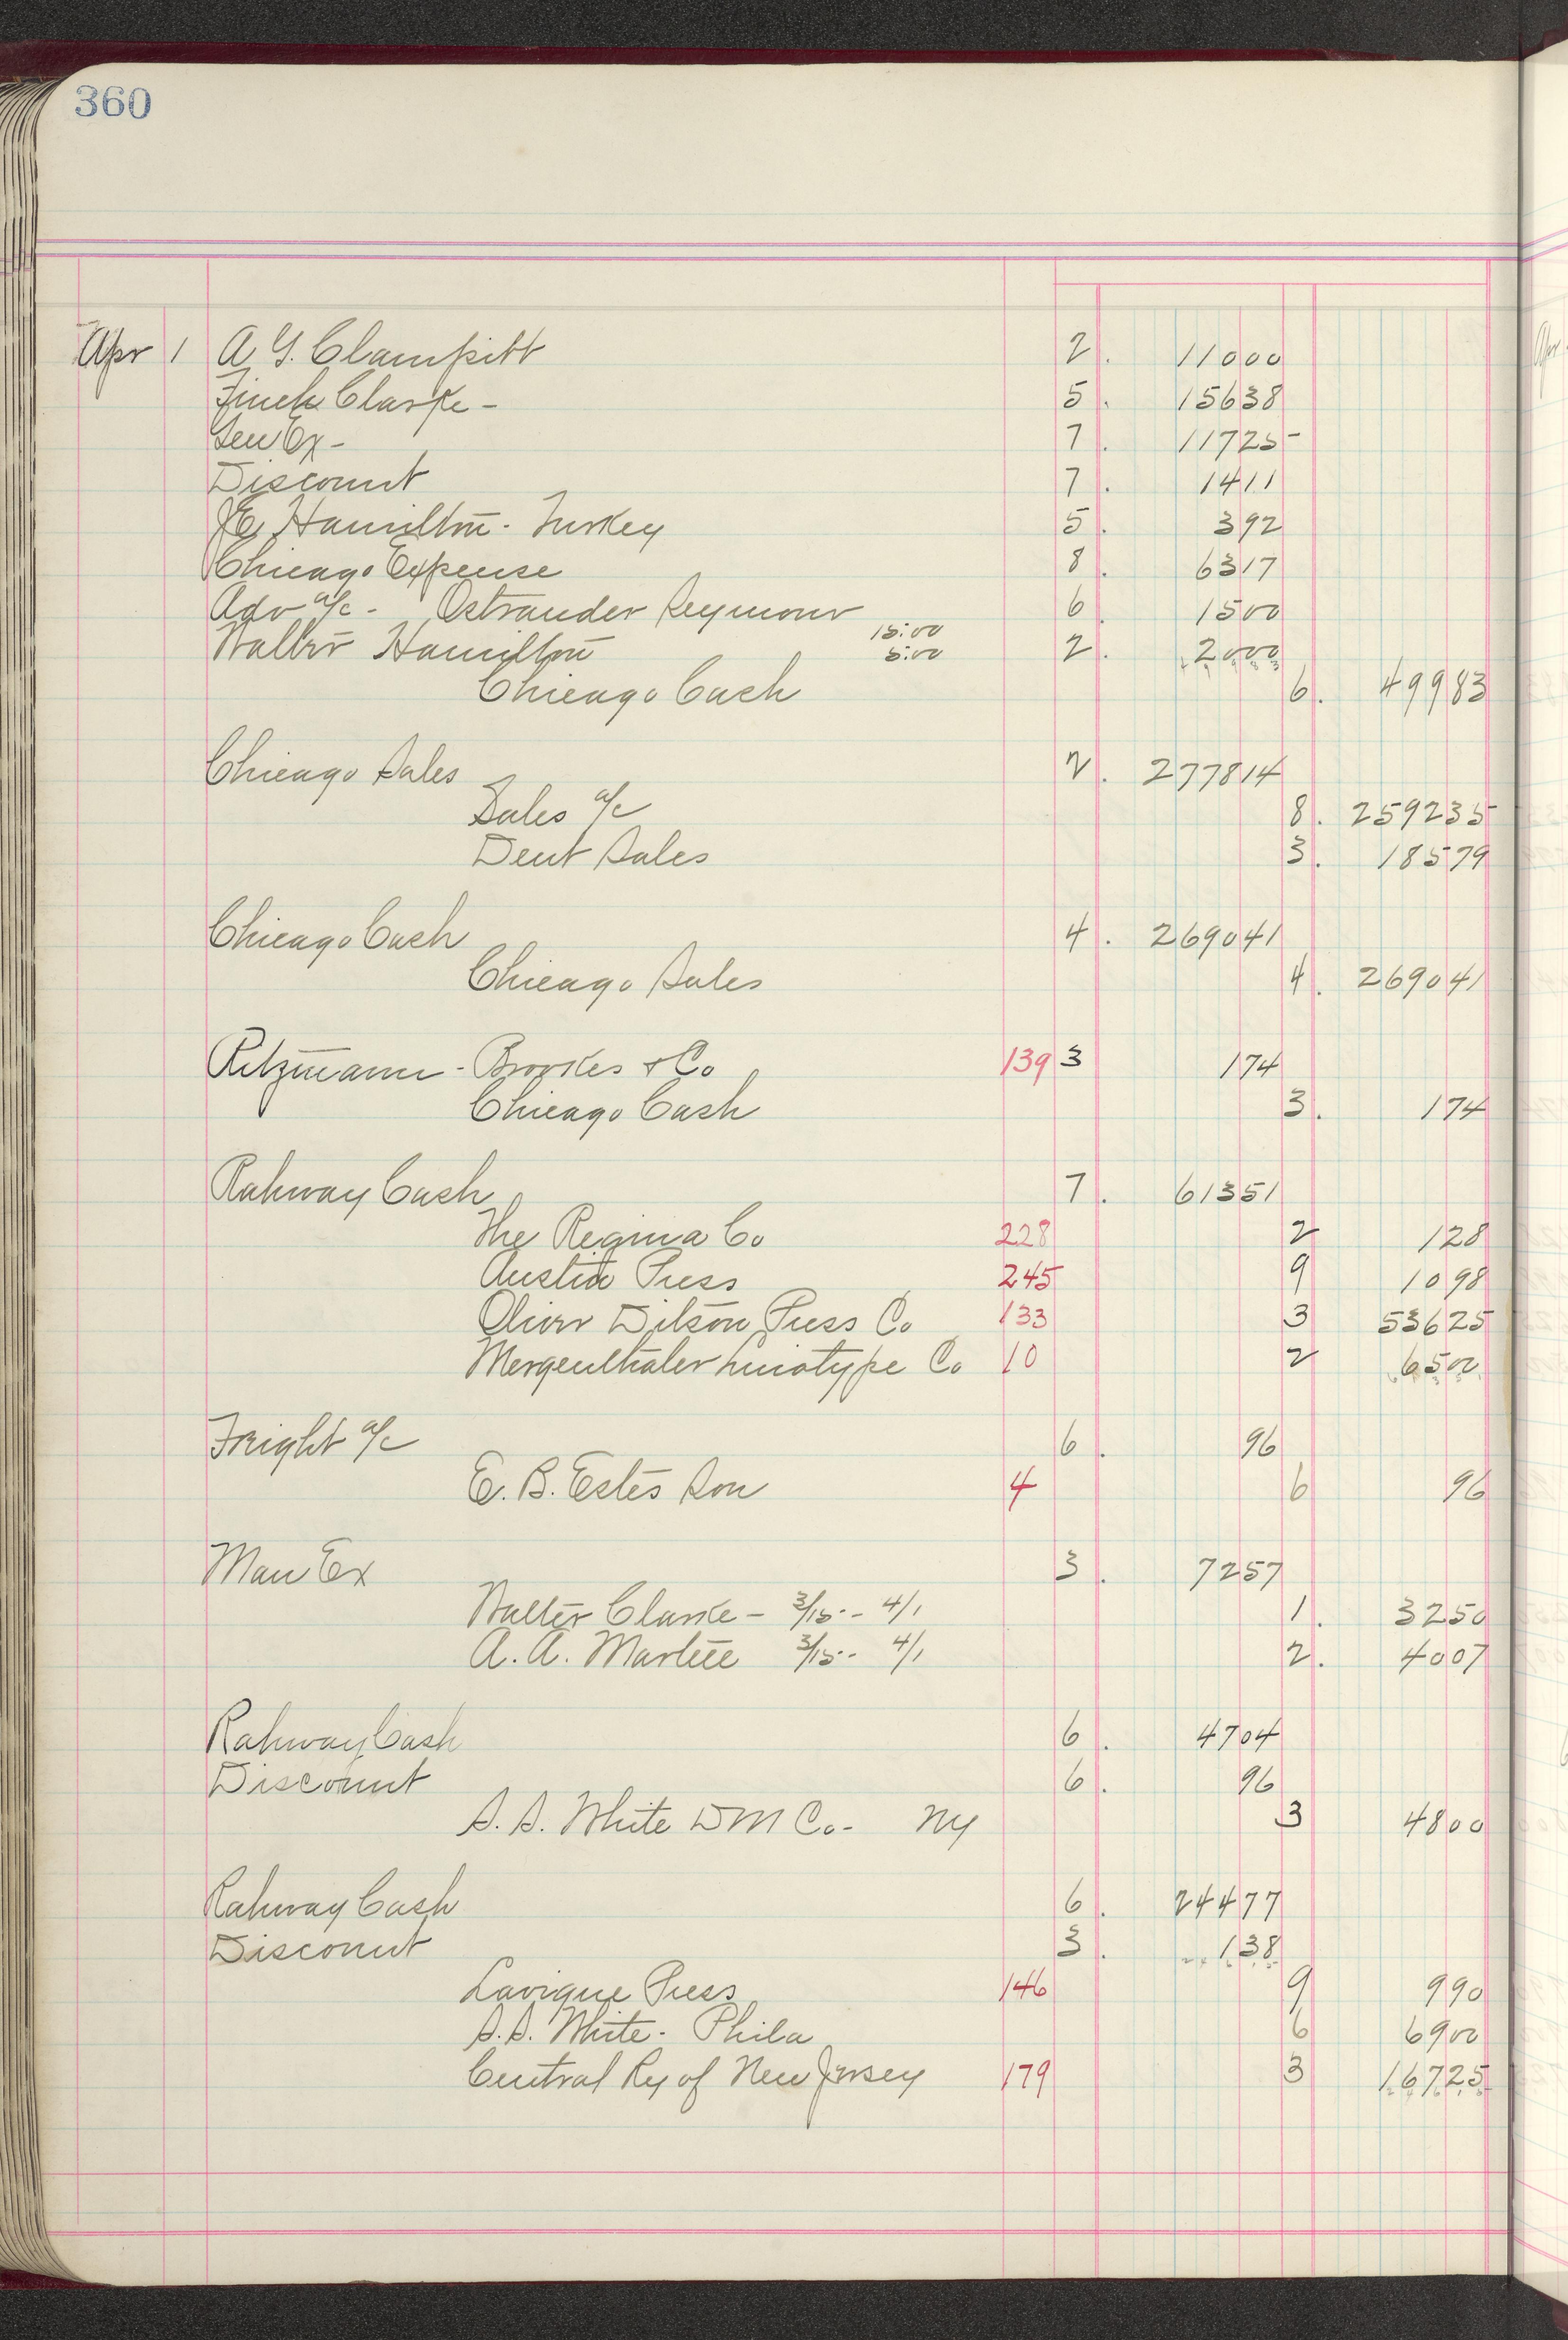 360
Apr 1 A G. Clampitt 2. 11000
Finck Clarke - 5. 15638
Gen Ex - 7. 11725-
Discount 7. 1411
JE Hamilton - Turkey 5. 392
Chicago Expense 8. 6317
Adv a/c - Ostrander Seymour 6. 1500
Walter Hamilton 15.00 5.00 2. 2000
Chicago Cash 6. 49983
Chicago Sales 2. 277814
Sales a/c 8. 259235
Dent Sales 3. 18579
Chicago Cash 4. 269041
Chicago Sales 4. 269041
Ritzmann - Brookes & Co 139 3 174
Chicago Cash 3. 174
Rahway Cash 7. 61351
The Regina Co 228 2 128
Austin Press 245 9 1098
Oliver Ditson Press Co 133 3 53625
Mergenthaler Linotype Co 10 2 6500
Freight a/c 6. 96
E. B. Estes Son 4 6 96
Man Ex 3. 7257
Walter Clarke - 3/15 - 4/1 1. 3250
A. A. 3/15 - 4/1 2. 4007
Rahway Cash 6. 4704
Discount 6. 96
S. S. White D M Co - NY 3 4800
Rahway Cash 6. 24477
Discount 3. 138
Lavigne Press 146 9 990
S. S. White - Phila 6 6900
Central Ry of New Jersey 179 3 16725